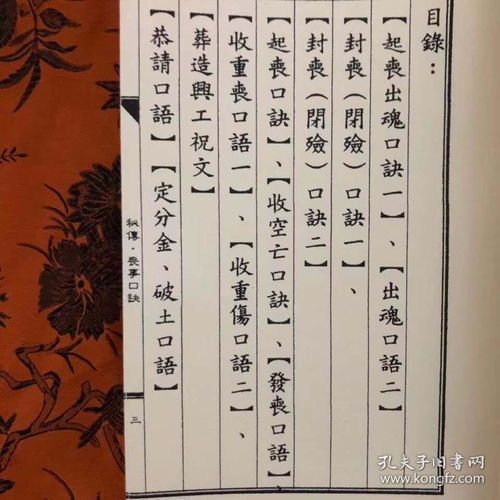 目錄：
【起喪出魂口訣一】、【出魂口語二】
【封喪（閉殮）口訣一】、
【封喪（閉殮）口訣二】
【起喪口訣】、【收空亡口訣】、【發喪口語】、
【收重喪口語一】、【收重傷口語二】、
【葬造興工祝文】
【恭請口語】【定分金、破土口語】
秘傳·喪事口訣
三
孔夫子旧书网
www.kongfz.com